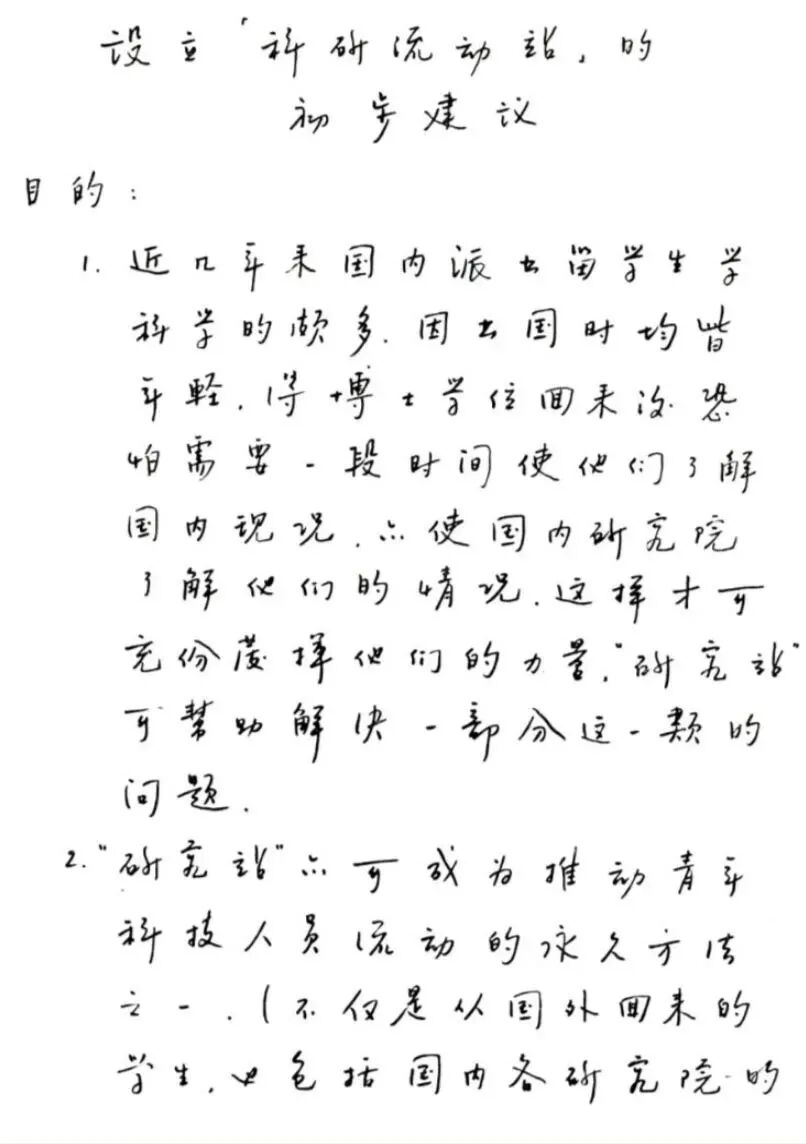 设立「科研流动站」的
初步建议
目的：
1. 近几年来国内派出留学生学
科学的颇多. 因出国时均皆
年轻. 得博士学位回来後恐
怕需要一段时间使他们了解
国内现况. 亦使国内研究院
了解他们的情况. 这样才可
充份发挥他们的力量. "研究站"
可帮助解决一部分这一类的
问题.
2. "研究站"亦可成为推动青年
科技人员流动的永久方法
之一. (不仅是从国外回来的
学生, 也包括国内各研究院的